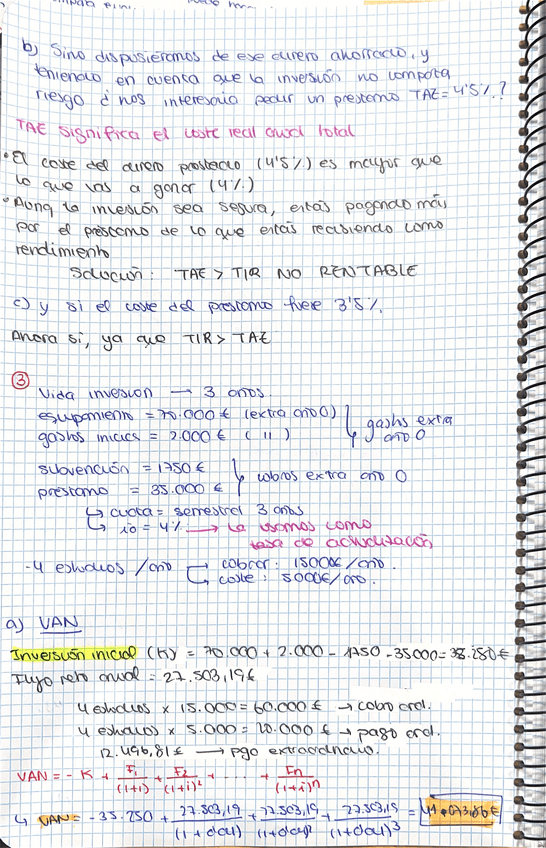 b) Sino dispusiéramos de ese dinero ahorrado, y
teniendo en cuenta que la inversión no comporta
riesgo ¿nos interesaría pedir un prestamo TAE = 4'5%.?
TAE significa el coste real anual total
• El coste del dinero prestado (4'5%) es mayor que
lo que vas a ganar (4%)
• Aunq la inversión sea segura, estás pagando más
por el préstamo de lo que estás recibiendo como
rendimiento
Solución: TAE > TIR NO RENTABLE
c) y si el coste del prestamo fuere 3'5%.
Ahora si, ya que TIR > TAE
③
Vida inversion → 3 años.
equipamiento = 70.000 € (extra año 0)
gastos inicies = 2.000 € ( 11 )
gastos extra
año 0
subvención = 1750 €
préstamo = 35.000 €
cobros extra año 0
↳ cuota = semestral 3 años
↳ io = 4% → La usamos como
tasa de actualización
- 4 estudios / año → cobrar: 15000€ / año.
↳ coste: 5000€/año.
a) VAN
Inversión inicial (K) = 70.000 + 2.000 - 1750 - 35000 = 35.250 €
Flujo neto anual = 27.503,19€
4 estudios x 15.000 = 60.000 € → cobro ord.
4 estudios x 5.000 = 20.000 € → pago ord.
12.496,81 € → pgo extraordinario.
VAN = - K + F1/(1+i) + F2/(1+i)² + ..... + Fn/(1+i)ⁿ
↳ VAN = - 35.250 + 27.503,19/(1+0'04) + 27.503,19/(1+0'04)² + 27.503,19/(1+0'04)³ = 41.073,86€